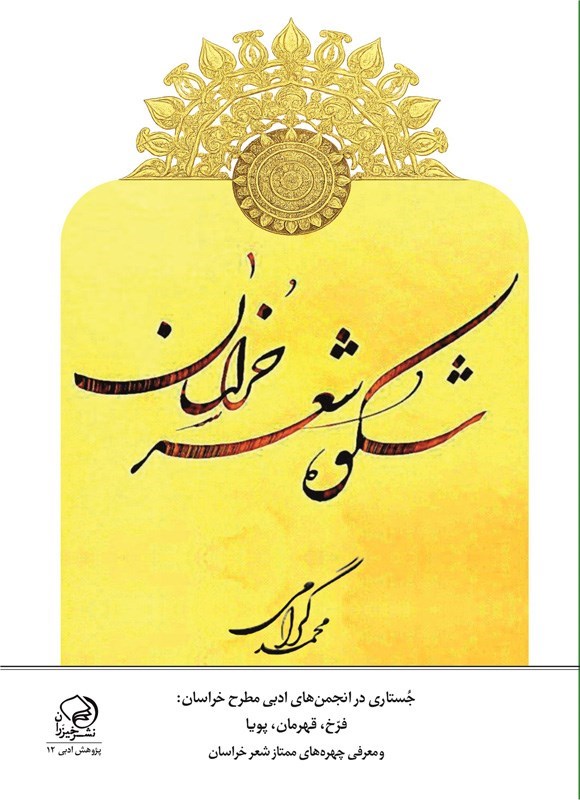 شکوه شعر خُراسان
محمد گرامی
جُستاری در انجمن‌های ادبی مطرح خراسان:
فرّخ، قهرمان، پویا
و معرفی چهره‌های ممتاز شعر خراسان
نشر خیزران
پژوهش ادبی ۱۲